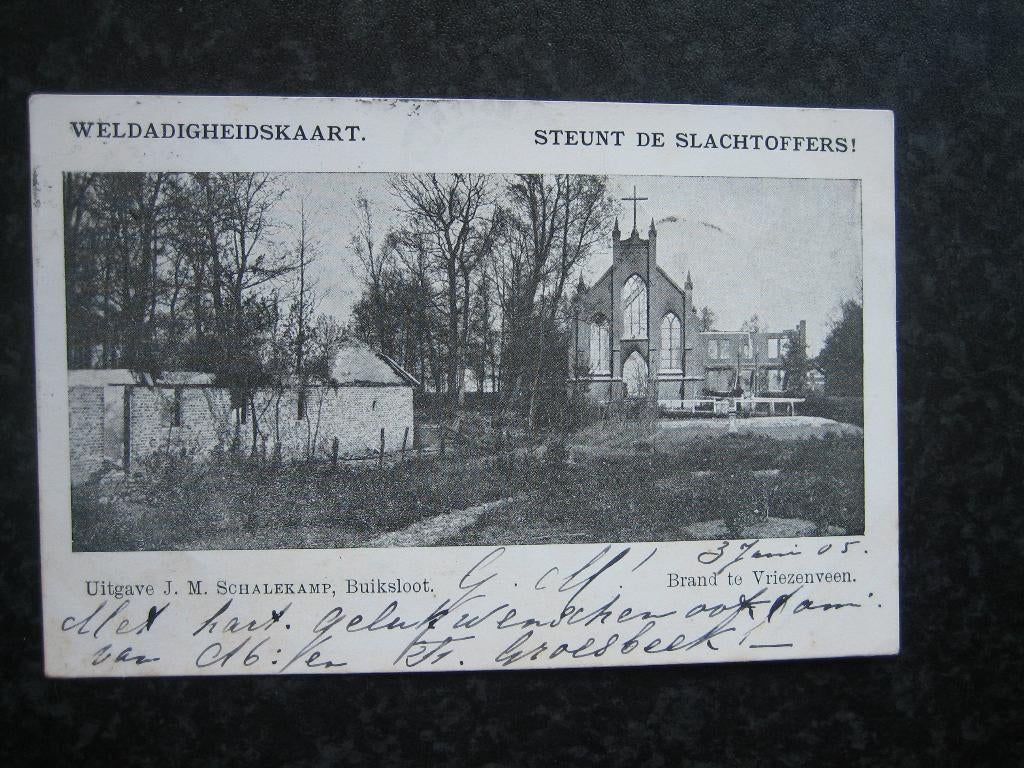 WELDADIGHEIDSKAART.
STEUNT DE SLACHTOFFERS!
Uitgave J. M. SCHALEKAMP, Buiksloot.
G. M! 3 Juni 05.
Brand te Vriezenveen.
Met hart. gelukwenschen ook
van Groesbeek